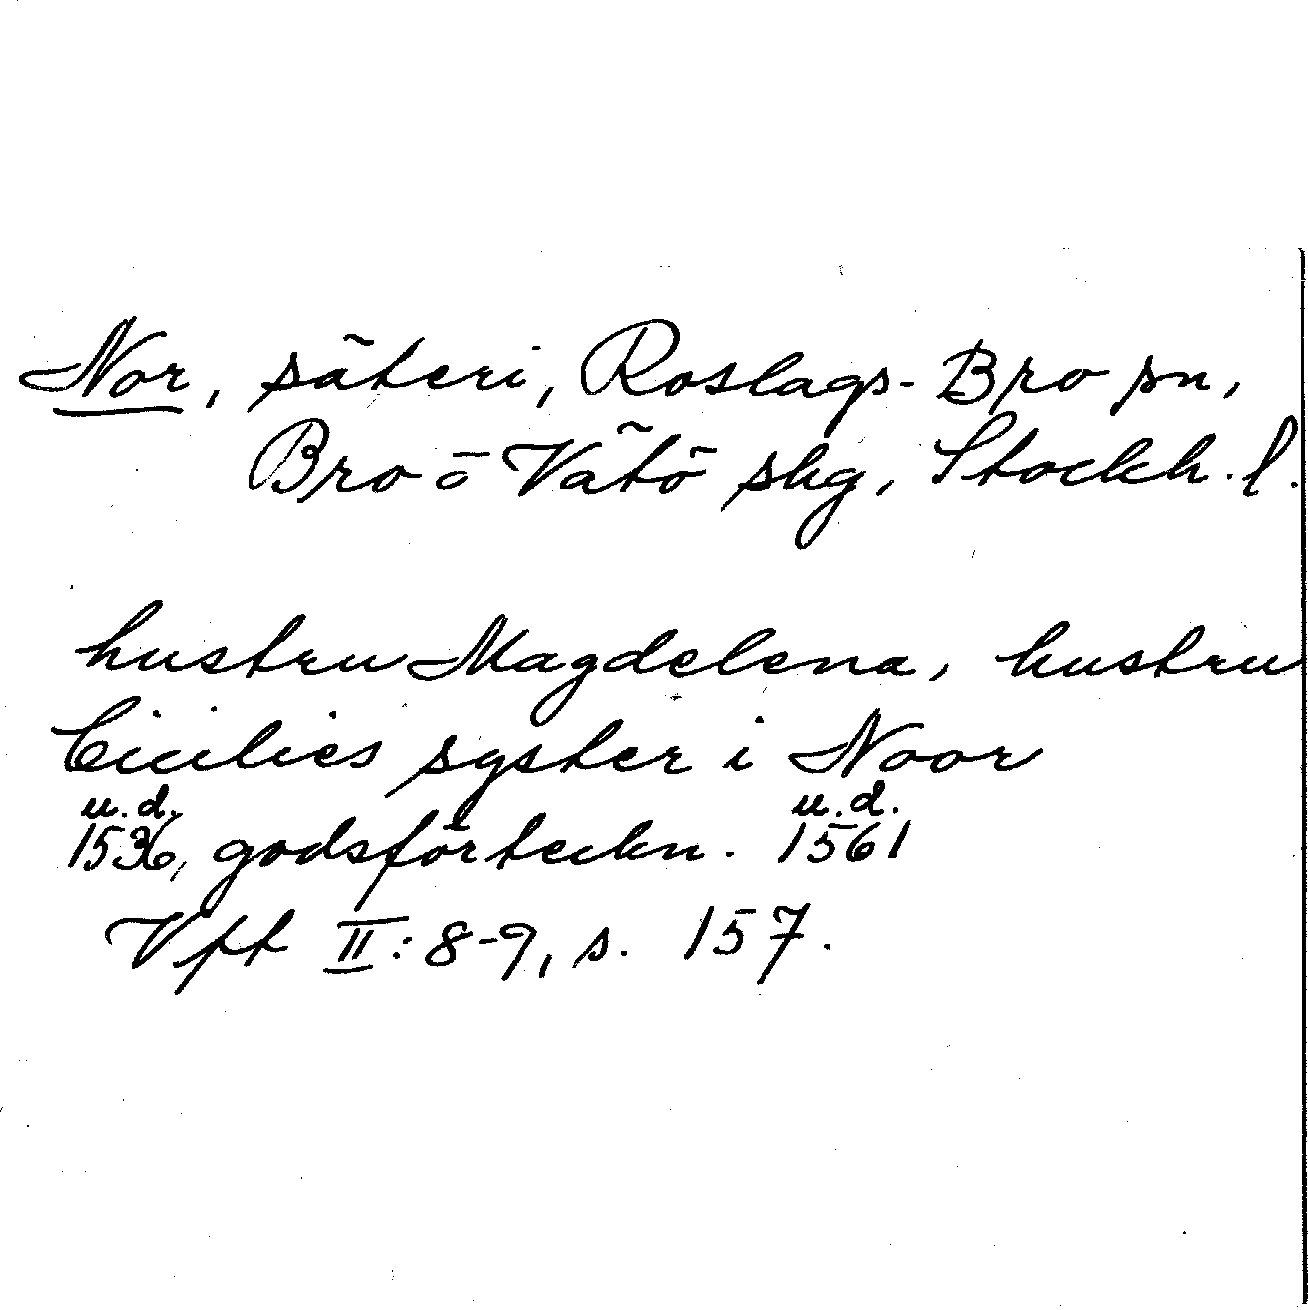 Nor, säteri, Roslags-Bro sn,
Bro o Vätö skg, Stockh. l.
hustru Magdelena, hustru
Cicilies syster i Noor
u.d. u.d.
1536, godsförteckn. 1561
Vft II: 8-9, s. 157.